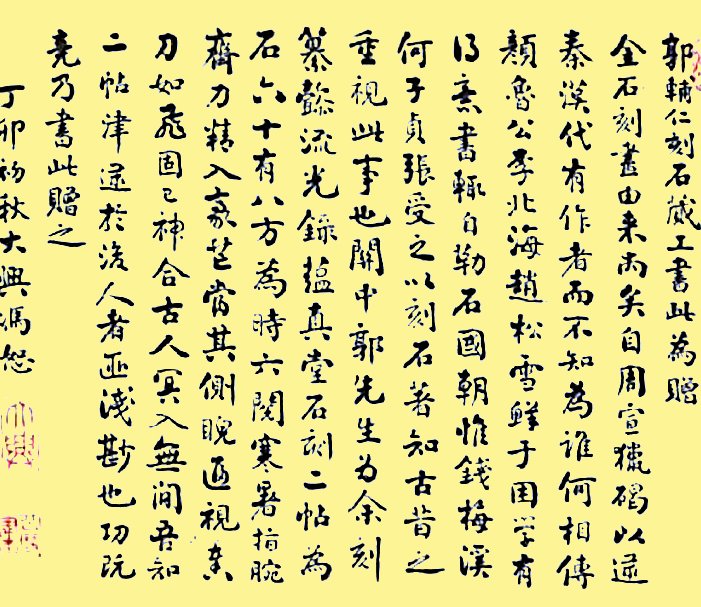 郭輔仁刻石蕆工書此為贈
金石刻畫由来尚矣自周宣獵碣以逮
秦漢代有作者而不知為誰何相傳
顏魯公李北海趙松雪鮮于困学有
得意書輙自勒石國朝惟錢梅溪
何子貞張受之以刻石著知古昔之
重視此事也關中郭先生为余刻
纂懿流光錄蕴真堂石刻二帖為
石六十有八方為時六閱寒暑指腕
齊力精入豪芒當其側睨近視奏
刀如飛固已神合古人冥入無间吾知
二帖津逮於後人者匪淺尠也功既
竟乃書此贈之
丁卯初秋大興馮恕